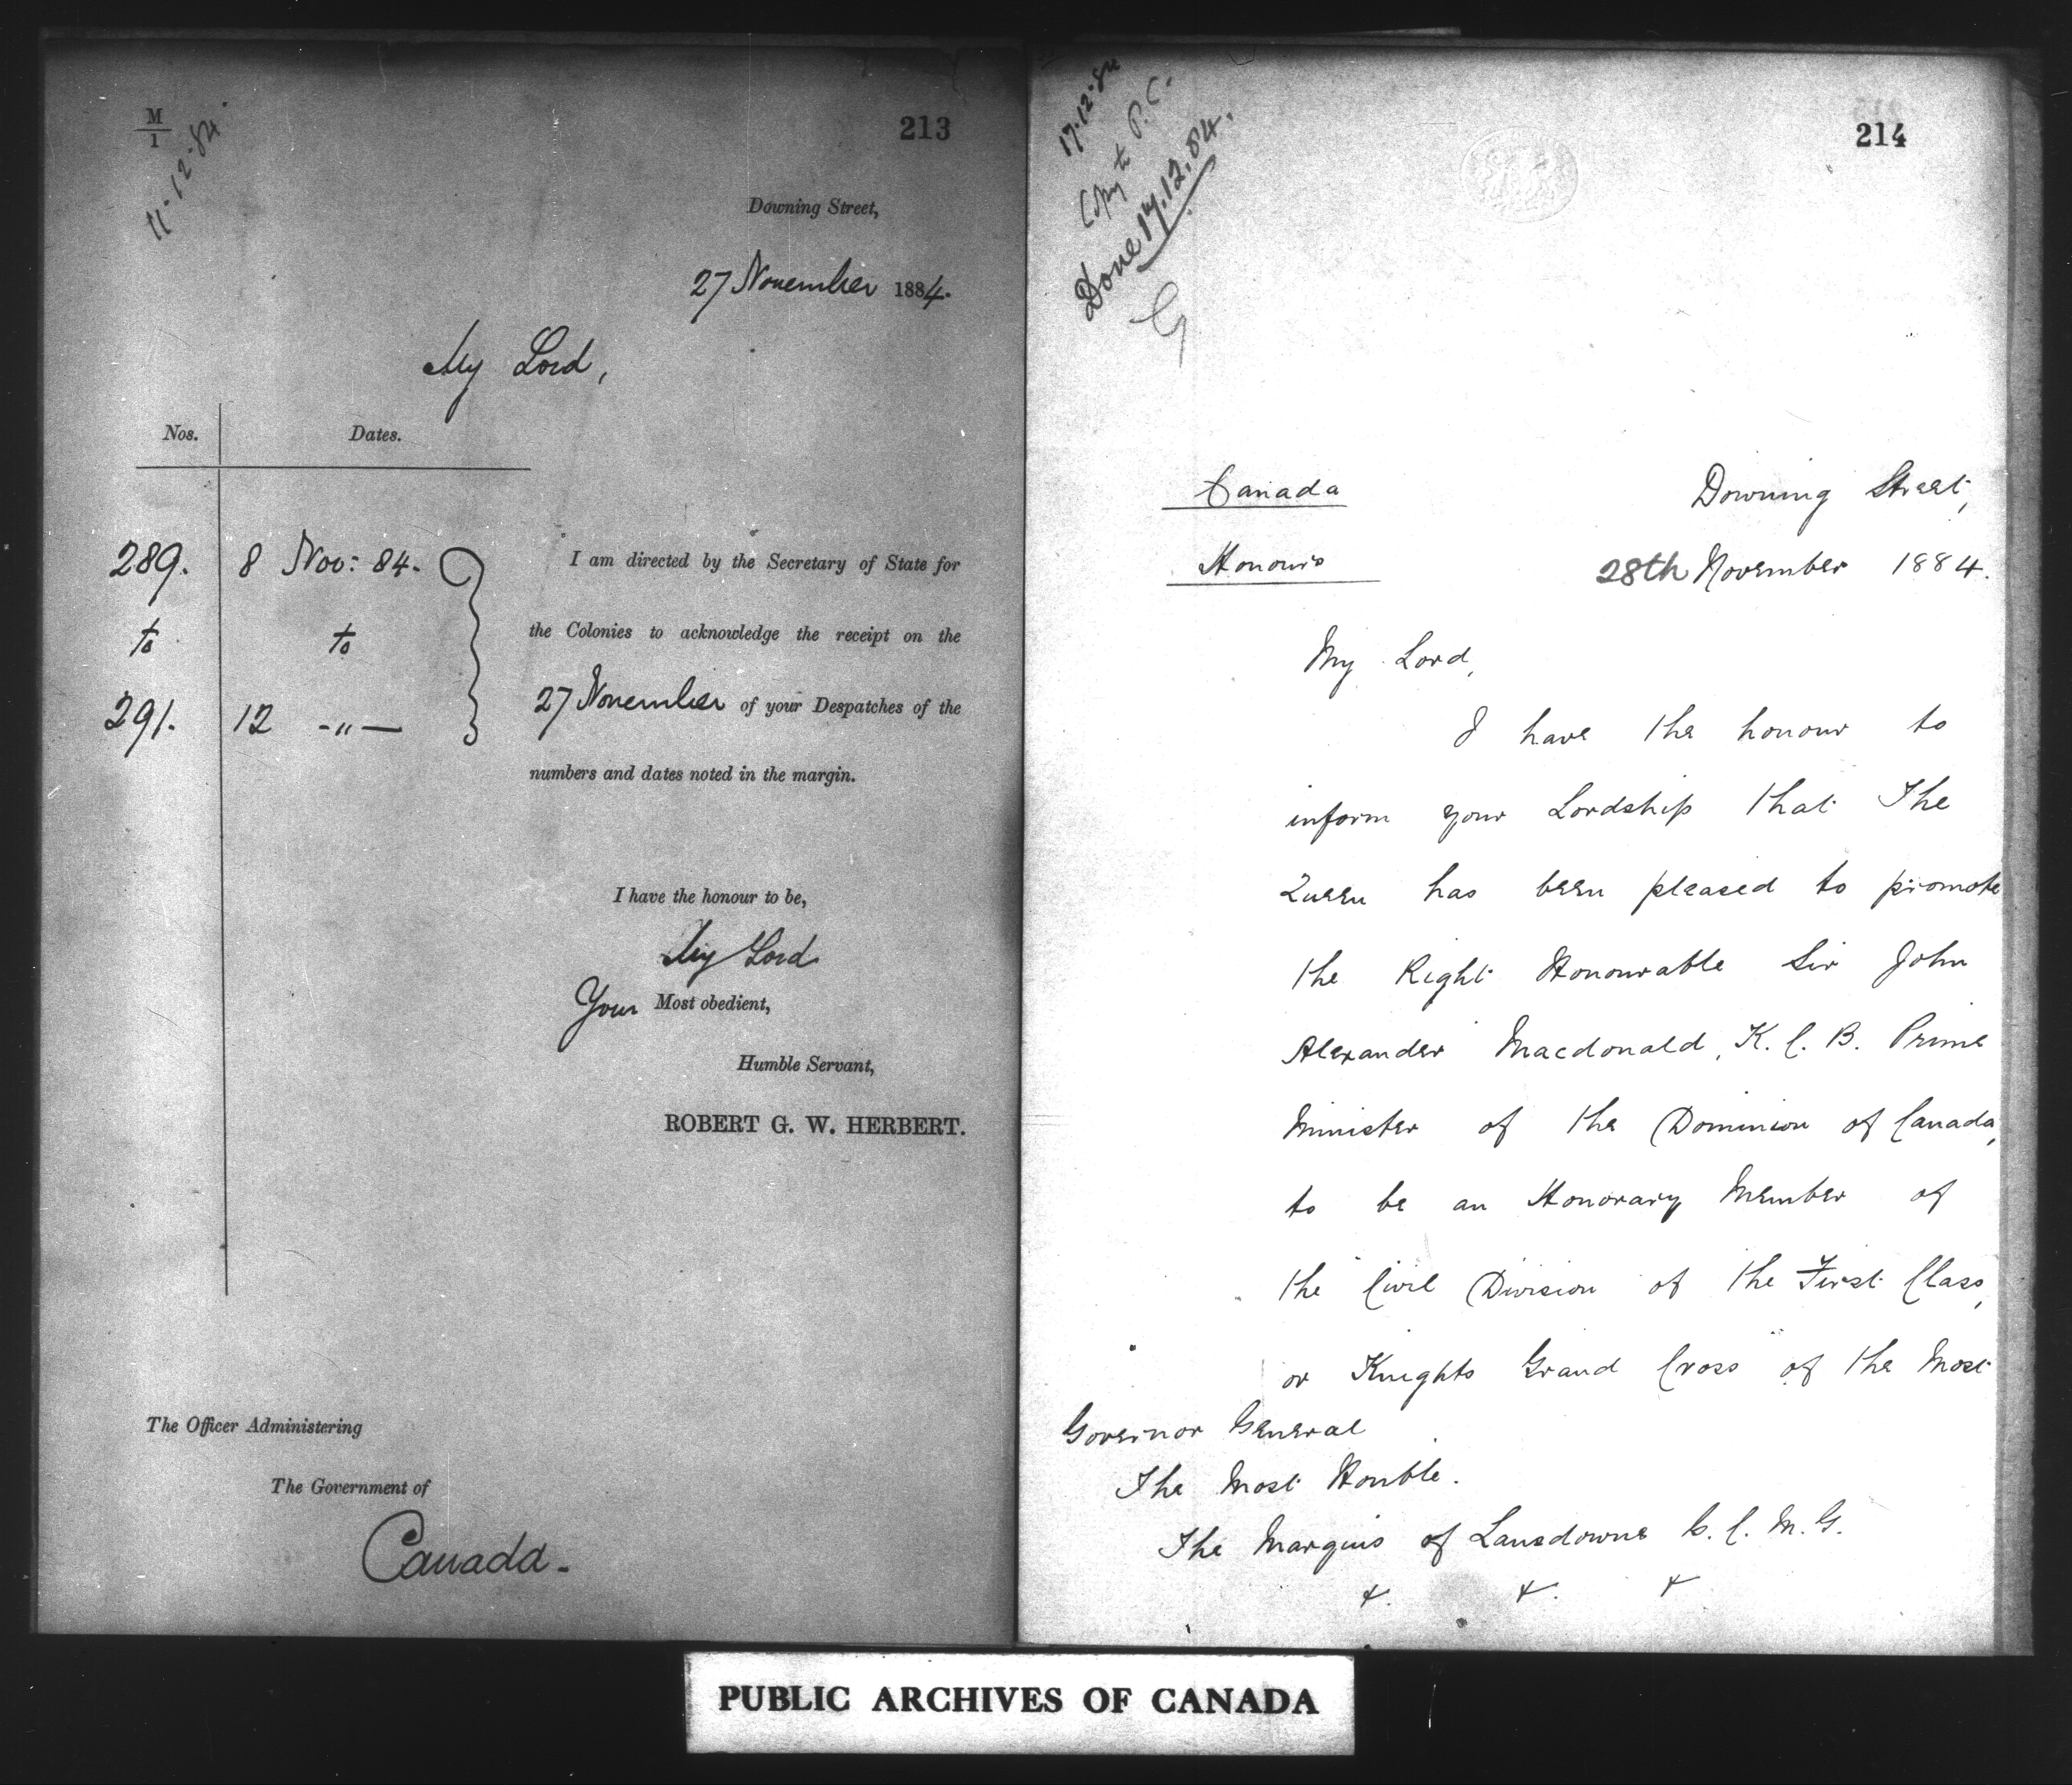 M
1
11-12-84
213
Downing Street,
27 November 1884.
My Lord,
Nos. Dates.
289. 8 Nov: 84.
to to
291. 12 -"-
I am directed by the Secretary of State for
the Colonies to acknowledge the receipt on the
27 November of your Despatches of the
numbers and dates noted in the margin.
I have the honour to be,
My Lord
Your Most obedient,
Humble Servant,
ROBERT G. W. HERBERT.
The Officer Administering
The Government of
Canada-
17.12.84
Copy to P.C.
Done 17.12.84.
G
214
Canada Downing Street,
Honours 28th November 1884.
My Lord,
I have the honour to
inform your Lordship that The
Queen has been pleased to promote
the Right Honourable Sir John
Alexander Macdonald, K.C.B. Prime
Minister of the Dominion of Canada,
to be an Honorary Member of
the Civil Division of the First Class,
or Knights Grand Cross of the Most
Governor General
The Most Honble.
The Marquis of Lansdowne G.C.M.G.
&. &. &
PUBLIC ARCHIVES OF CANADA